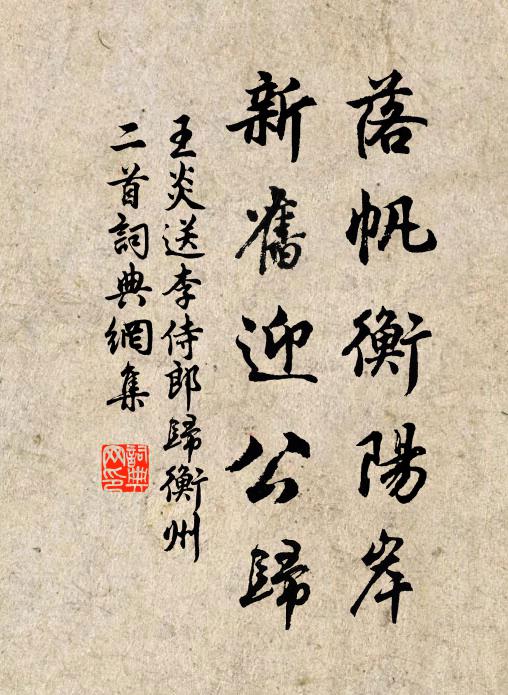 落帆衡陽岸
新舊迎公歸
王炎送李侍郎歸衡州
二首詞典網集
詞典網印